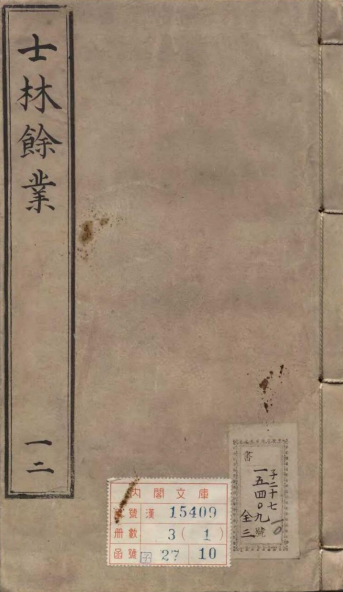 士林餘業
一二
內閣文庫
號 漢 15409
冊數 3(1)
函號 子 27 10
書
子二十七
一五四〇九號
全三
10